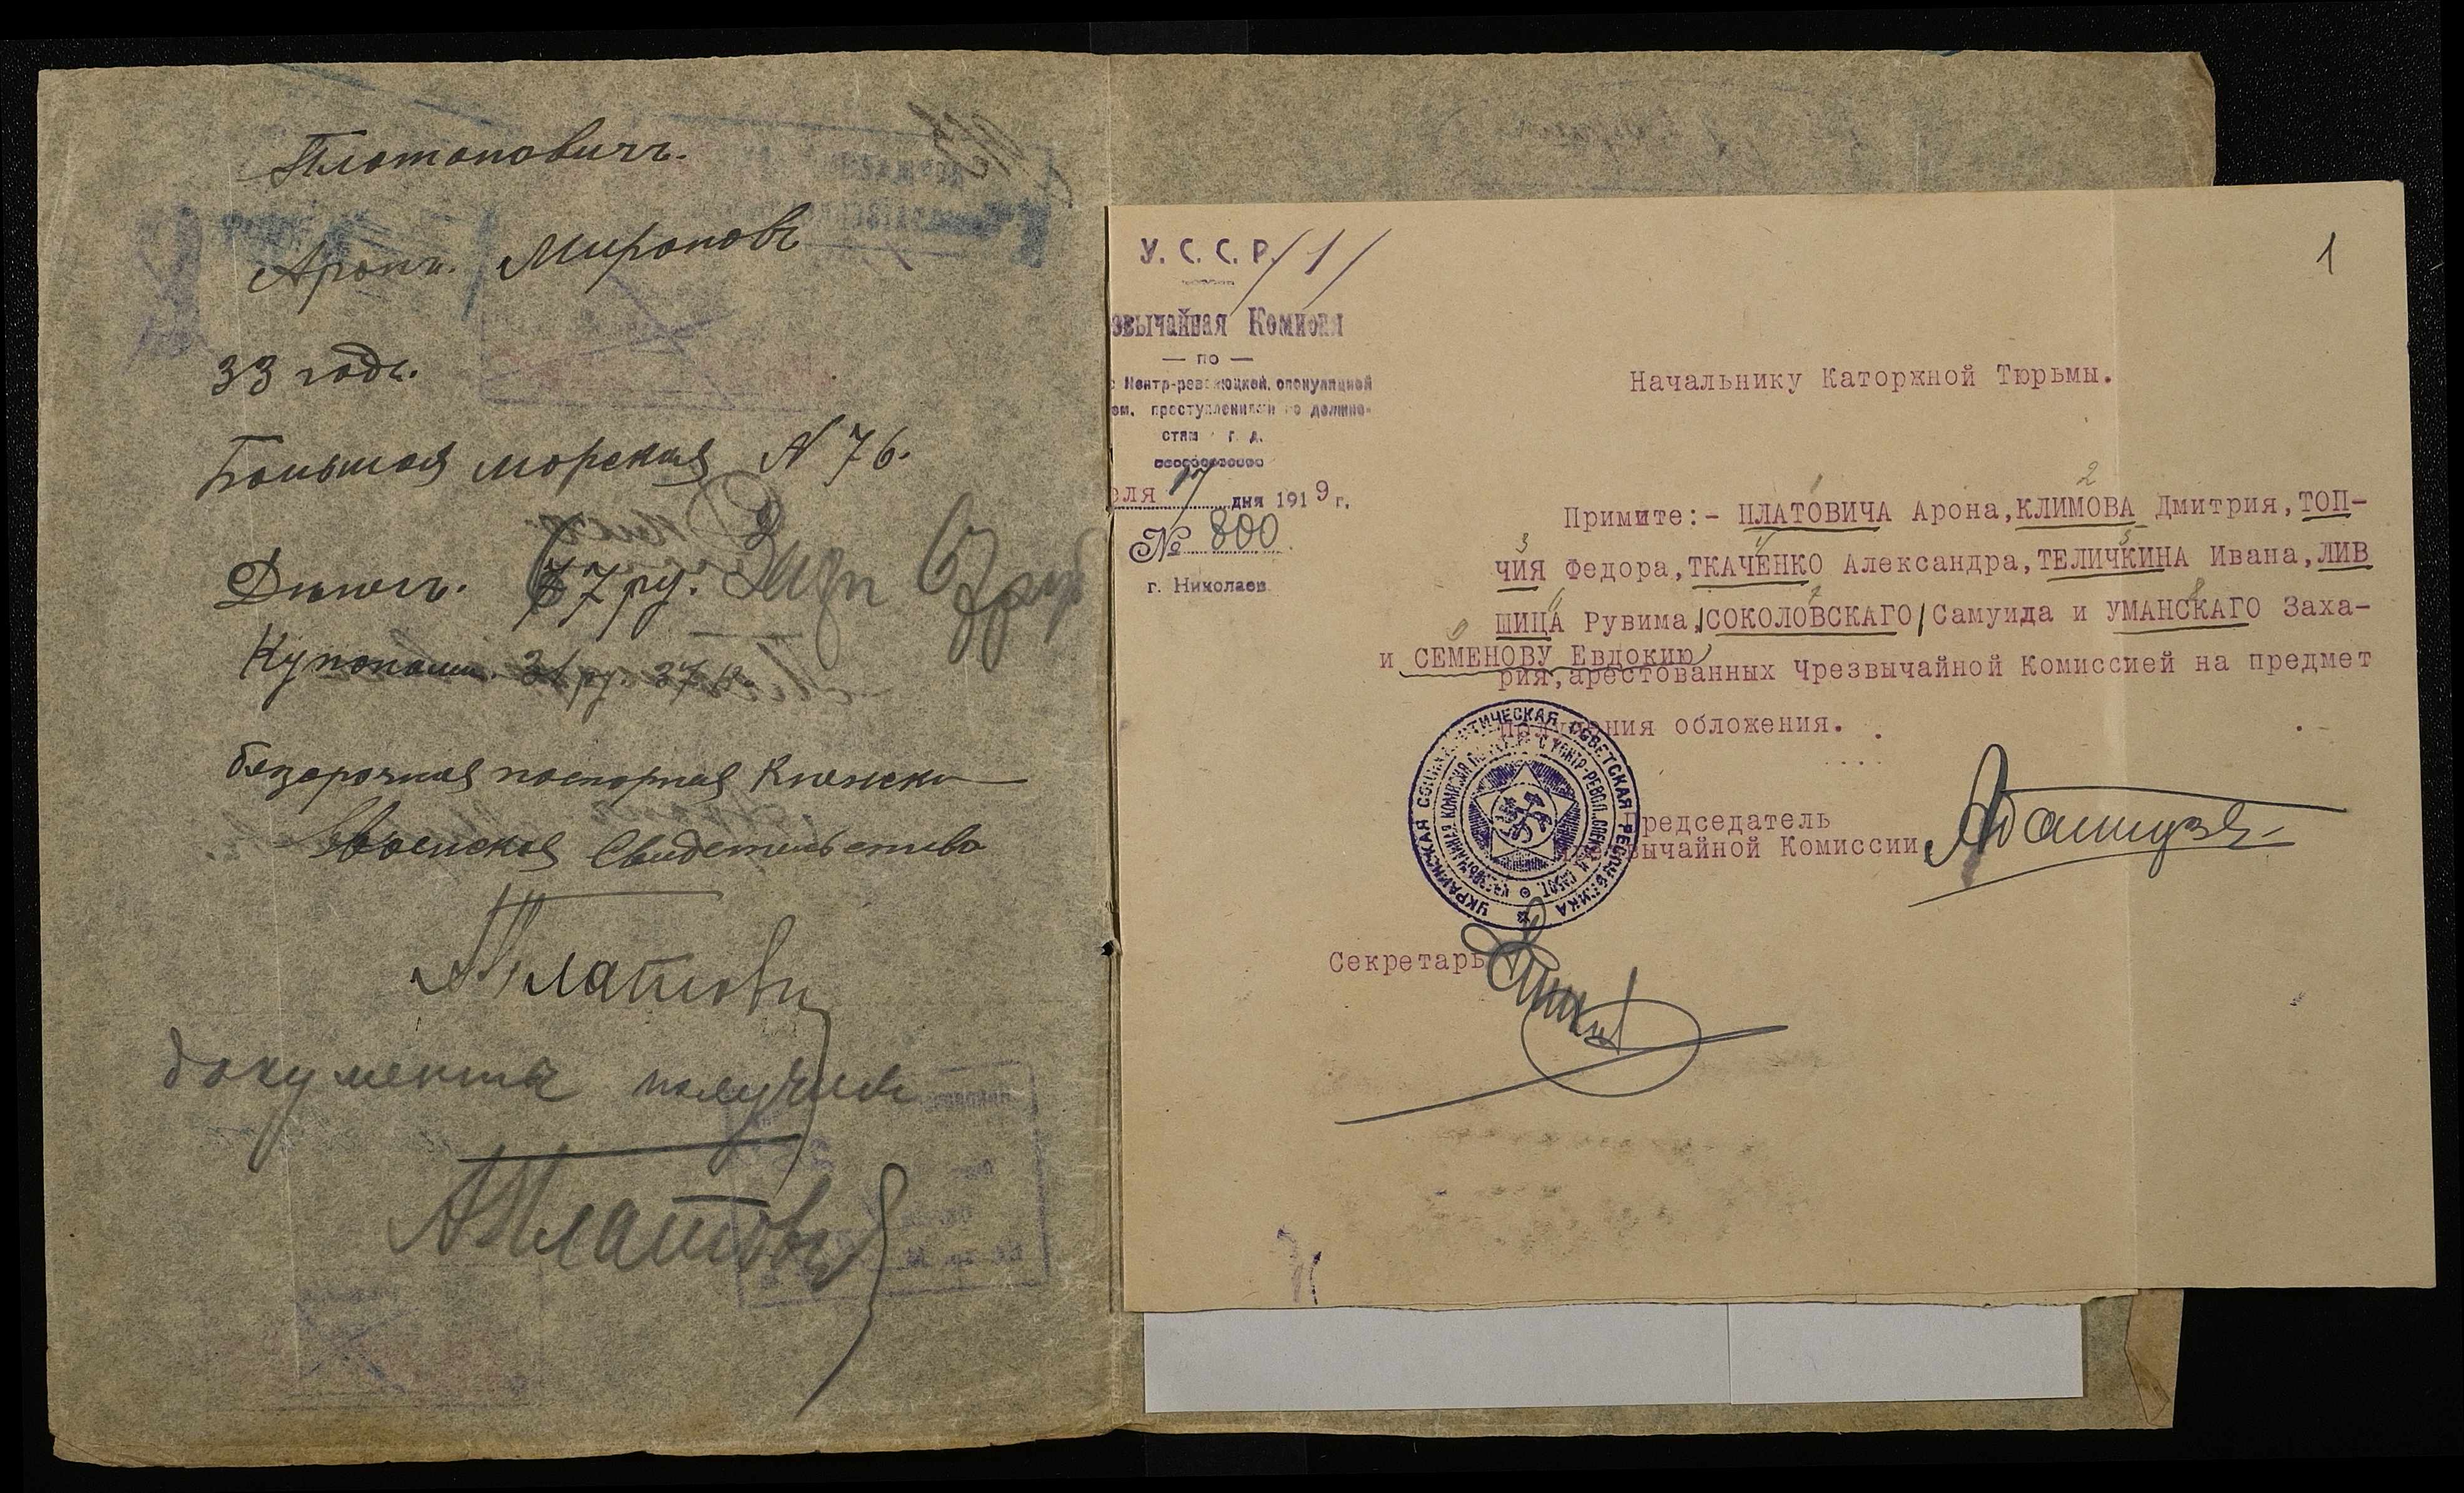 Платоновичъ.
Аронъ. Мироновъ
33 годъ.
Большая морская N 76.
Денегъ. 67 ру. 67 руб
Купонами. 31 ру. 37 к.
безсрочная паспортная Книжка
Воинское Свидетельство
АПлатович
документы получил
АПлатович
У. С. С. Р. /1/
1
звычайная Комиссия
— по —
с Контр-революцией, спекуляцией
преступлениями по должно-
стям г. д.
еля 17 дня 1919 г.
№ 800
г. Николаев
Начальнику Каторжной Тюрьмы.
1 2
Примите:- ПЛАТОВИЧА Арона, КЛИМОВА Дмитрия, ТОП-
3 4 5
ЧИЯ Федора, ТКАЧЕНКО Александра, ТЕЛИЧКИНА Ивана, ЛИВ
6 7 8
ШИЦА Рувима, /СОКОЛОВСКАГО/ Самуида и УМАНСКАГО Заха-
9
и СЕМЕНОВУ Евдокию
рия, арестованных Чрезвычайной Комиссией на предмет
получения обложения.
УКРАИНСКАЯ СОЦИАЛИСТИЧЕСКАЯ СОВЕТСКАЯ РЕСПУБЛИКА
Председатель
Чрезвычайной Комиссии
Секретарь